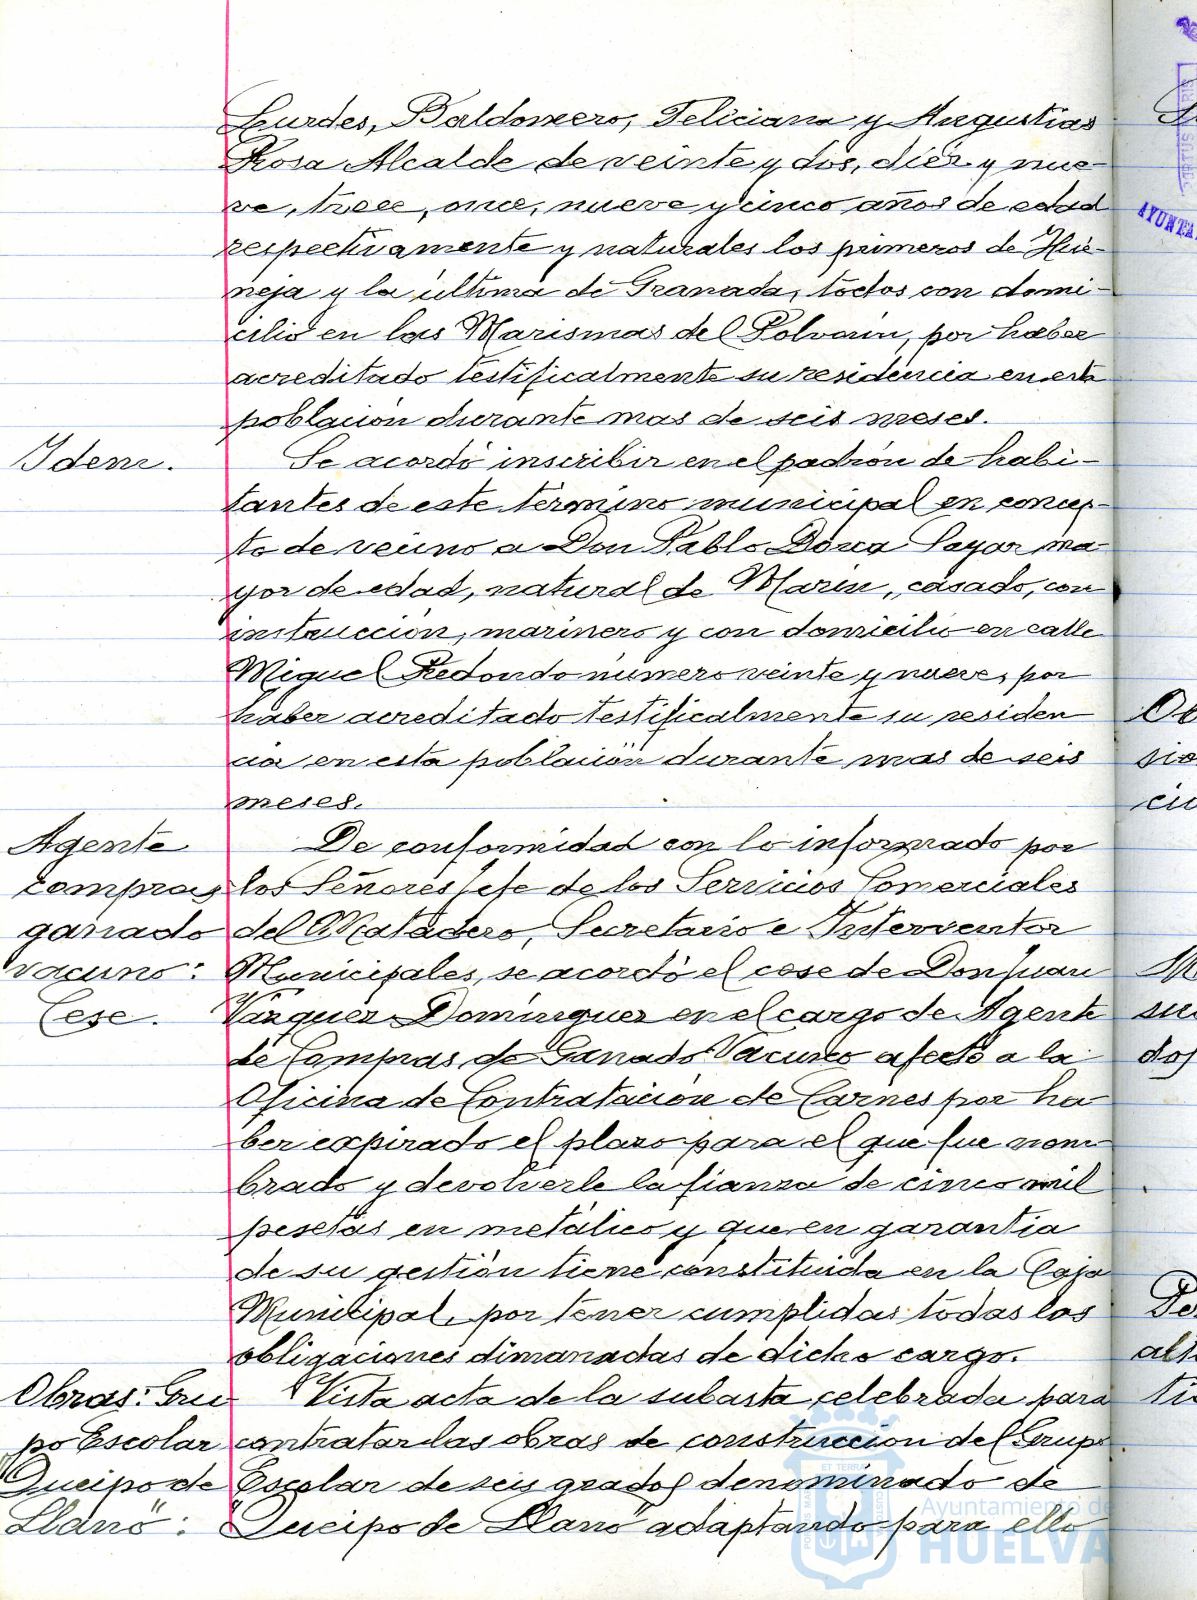 Lurdes, Baldomero, Feliciana y Angustias
Rosa Alcalde de veinte y dos, diez y nue-
ve, trece, once, nueve y cinco años de edad
respectivamente y naturales los primeros de Hué-
neja y la última de Granada, todos con domi-
cilio en las Marismas del Polvorin, por haber
acreditado testificalmente su residencia en esta
poblacion durante mas de seis meses.
Idem.
Se acordó inscribir en el padrón de habi-
tantes de este término municipal en concep-
to de vecino a Don Pablo
mayor de edad, natural de Marin, casado, con
instrucción, marinero y con domicilio en calle
Miguel Redondo número veinte y nueve, por
haber acreditado testificalmente su residen
cia en esta población durante mas de seis
meses.
Agente
compras
ganado
vacuno:
Cese.
De conformidad con lo informado por
los Señores Jefe de los Servicios Comerciales
del Matadero, Secretario e Interventor
Municipales, se acordó el cese de Don Juan
Vázquez Dominguez en el cargo de Agente
de Compras de Ganado Vacuno afecto a la
Oficina de Contratación de Carnes por ha
ber expirado el plazo para el que fue nom
brado y devolverle la fianza de cinco mil
pesetas en metálico y que en garantia
de su gestión tiene constituida en la Caja
Municipal, por tener cumplidas todas las
obligaciones dimanadas de dicho cargo.
Obras: Gru
po Escolar
"Queipo de
Llano":
Vista acta de la subasta celebrada para
contratar las obras de construccion del Grupo
Escolar de seis grados denominado de
"Queipo de Llano" adaptando para ello
Ayuntamiento de
HUELVA